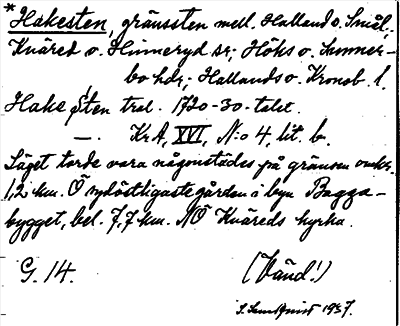 *Hakesten, gränssten mell. Halland o. Smål.,
Knäred o. Hinneryd sr; Höks o. Sunner-
bo hdr; Hallands o. Kronob. l.
Hake Sten trol. 1720-30-talet.
—. KrA, XVI, N:o 4, lit. b.
Läget torde vara någonstädes på gränsen omkr.
1,2 km. Ö nydöstligaste gården i byn Bagga-
bygget, bel. 7,7 km. NÖ Knäreds kyrka.
G. 14. (Vänd!)
S. Sundquist 1937.